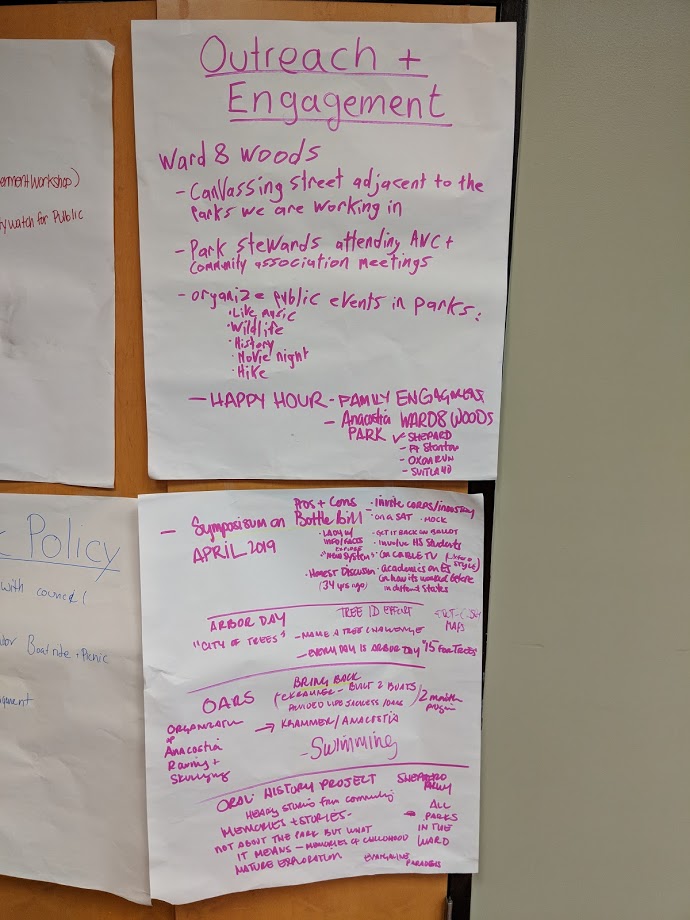 Outreach +
Engagement
Ward 8 Woods
- Canvassing street adjacent to the
parks we are working in
- Park Stewards attending ANC +
community association meetings
- organize public events in parks:
• Live music
• Wildlife
• History
• Movie night
• Hike
- HAPPY HOUR - FAMILY ENGAGMENT
- Anacostia WARD 8 WOODS
PARK ✓ SHEPARD
- Ft Stanton
- OXON RUN
- SUITLAND
- Symposisum on
Bottle Bill
APRIL 2019
Pros + Cons
INFO/FACTS
"New System"
• Honest Discussion
(34 yrs ago)
- invite corps/industry
• on a SAT • MOCK
• GET IT BACK ON BALLOT
• Involve HS Students
• On CABLE TV
STYLE)
• academics on
on how its worked before
in different States
ARBOR DAY
"CITY OF TREES"
TREE ID EFFORT
- NAME A TREE CHALLENGE
- EVERY DAY IS ARBOR DAY "15 FOR TREES"
MAPS
OARS
ORGANIZATION
of
Anacostia
Rowing +
Skullying
BRING BACK
- BUILT 2 BOATS
LIFE JACKETS
2 month
→ KRAMMER/ANACOSTIA
- Swimming
ORAL HISTORY PROJECT
HEARING STORIES from community
MEMORIES + STORIES -
NOT ABOUT THE PARK BUT WHAT
IT MEANS - MEMORIES of CHILDHOOD
NATURE EXPLORATION
SHEPHERD
PKWY
ALL
PARKS
IN THE
WARD
erment Workshop)
ty watch for Public
Policy
with council
Boat ride + Picnic